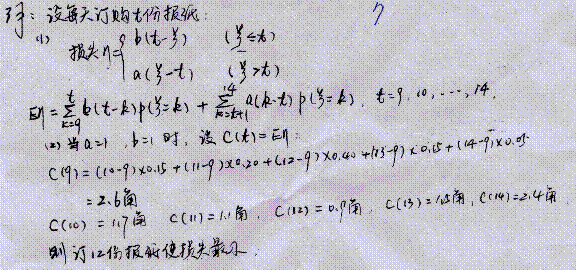 解: 设每天订购t份报纸: 7
(1) 损失η= { b(t-ξ) (ξ≤t)
a(ξ-t) (ξ>t)
Eη = Σ_{k=9}^{t} b(t-k)p(ξ=k) + Σ_{k=t+1}^{14} a(k-t)p(ξ=k), t=9, 10, ..., 14.
(2) 当a=1 b=1时, 设C(t)=Eη:
C(9) = (10-9)×0.15 + (11-9)×0.20 + (12-9)×0.40 + (13-9)×0.15 + (14-9)×0.05
= 2.6角
C(10) = 1.7角 C(11)=1.1角, C(12)=0.9角, C(13)=1.5角, C(14)=2.4角
则订12份报纸使损失最小.